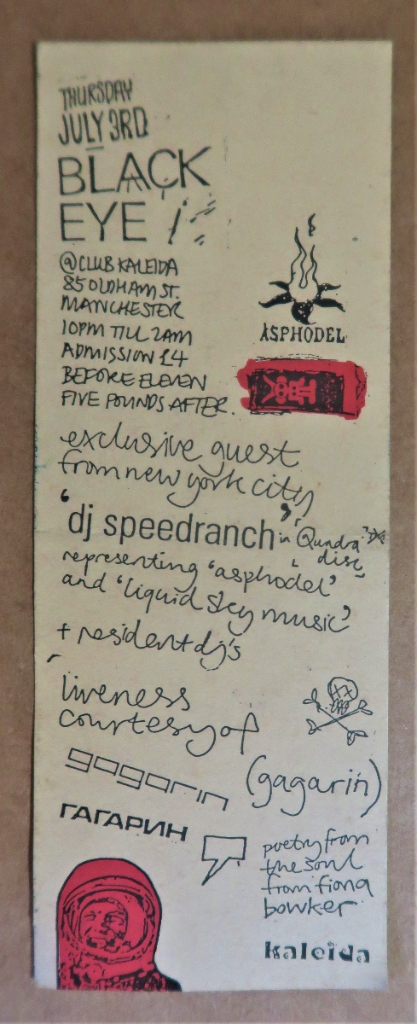 THURSDAY
JULY 3RD
BLACK
EYE !
@CLUB KALEIDA
85 OLDHAM ST.
MANCHESTER
10PM TILL 2AM
ADMISSION £4
BEFORE ELEVEN
FIVE POUNDS AFTER.
ASPHODEL
exclusive guest
from new york city
'dj speedranch' in Qundra
disc,
representing 'asphodel'
and 'liquid sky music'
+ resident dj's
liveness
courtesy of
gagarin
(gagarin)
ГАГАРИН
poetry from
the soul
from fiona
bowker
kaleida